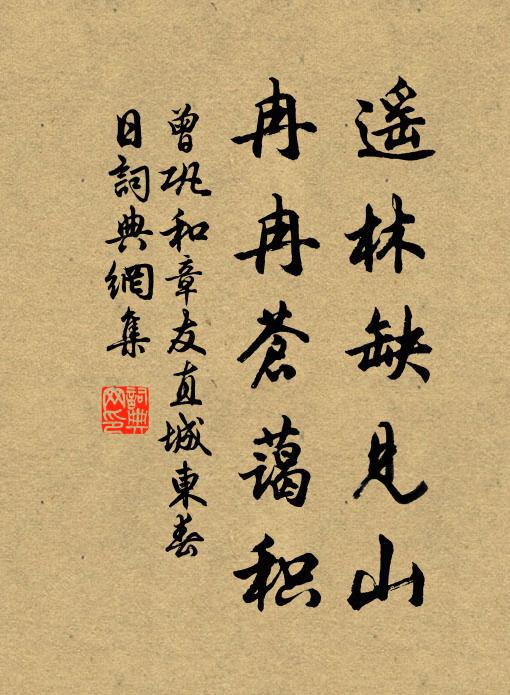 遥林缺見山
冉冉蒼藹积
曾巩和章友直城東春
日詞典網集
詞典网印